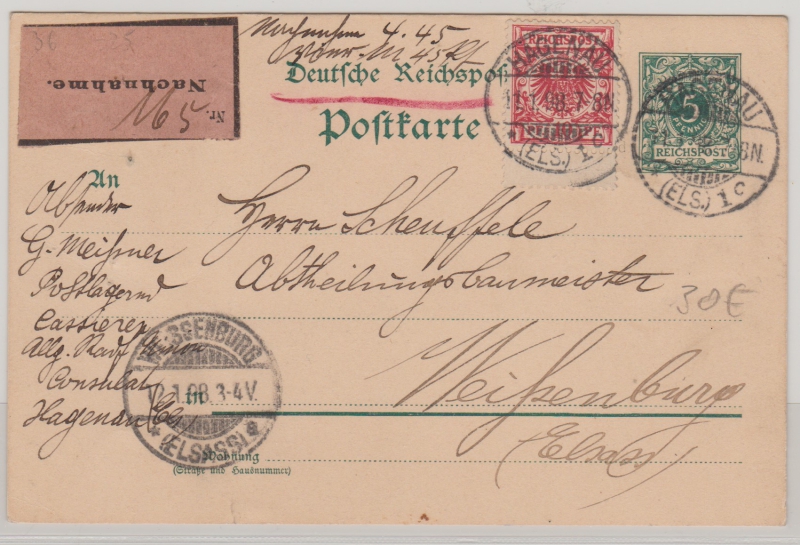 Nachnahme 4.45
vier M 45 Pf
Nachnahme.
Nr. 165
Deutsche Reichspost
Postkarte
REICHSPOST
PFENNIG
HAGENAU
(ELS.) 1 c
5
PFENNIG
REICHSPOST
HAGENAU
8N.
(ELS.) 1 c
An
Absender
G. Meißner
Postlagernd
Cassierer
Allg. Radf Union
Consulat
Hagenau Els
Herrn Scheuffele
Abtheilungsbaumeister
30€
Weißenburg
in
Elsass
WEISSENBURG
12.1.98.3-4V.
* (ELSASS) a
Wohnung
(Straße und Hausnummer)